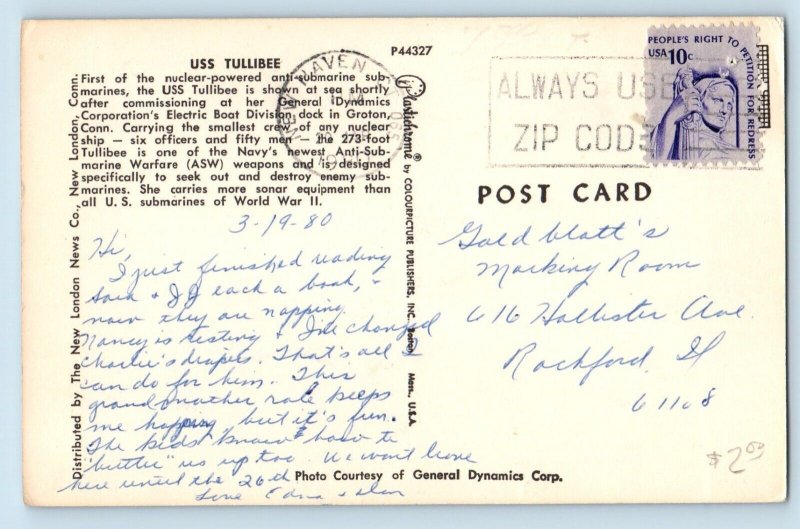 P44327
USS TULLIBEE
First of the nuclear-powered anti-submarine sub-
marines, the USS Tullibee is shown at sea shortly
after commissioning at her General Dynamics
Corporation's Electric Boat Division dock in Groton,
Conn. Carrying the smallest crew of any nuclear
ship — six officers and fifty men — the 273-foot
Tullibee is one of the Navy's newest Anti-Sub-
marine Warfare (ASW) weapons and is designed
specifically to seek out and destroy enemy sub-
marines. She carries more sonar equipment than
all U.S. submarines of World War II.
Distributed by The New London News Co., New London, Conn.
Plastichrome® by COLOURPICTURE PUBLISHERS, INC. Boston Mass., U.S.A.
NEW HAVEN
ALWAYS USE
ZIP CODE
PEOPLE'S RIGHT TO PETITION FOR REDRESS
USA 10c
POST CARD
3-19-80
Hi,
I just finished reading
Sara & JJ each a book, &
now they are napping.
Nancy is resting & I've changed
Charlie's drapes. That's all I
can do for him. This
grandmother role keeps
me hopping but it's fun.
The kids know how to
"butter" us up too. We won't leave
here until the 26th
Love Edna &
Goldblatt's
Marking Room
616 Hollister Ave.
Rockford, Il
61108
Photo Courtesy of General Dynamics Corp.
$2.00